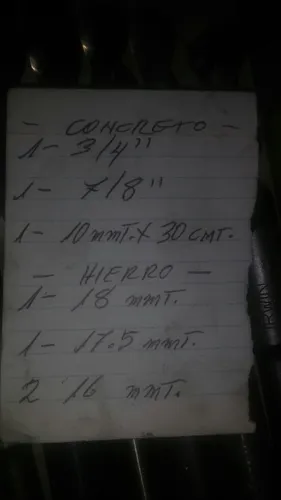 - CONCRETO -
1- 3/4"
1- 7/8"
1- 10 mmT. x 30 cmT.
- HIERRO -
1- 18 mmT.
1- 17.5 mmT.
2 16 mmT.
IRWIN